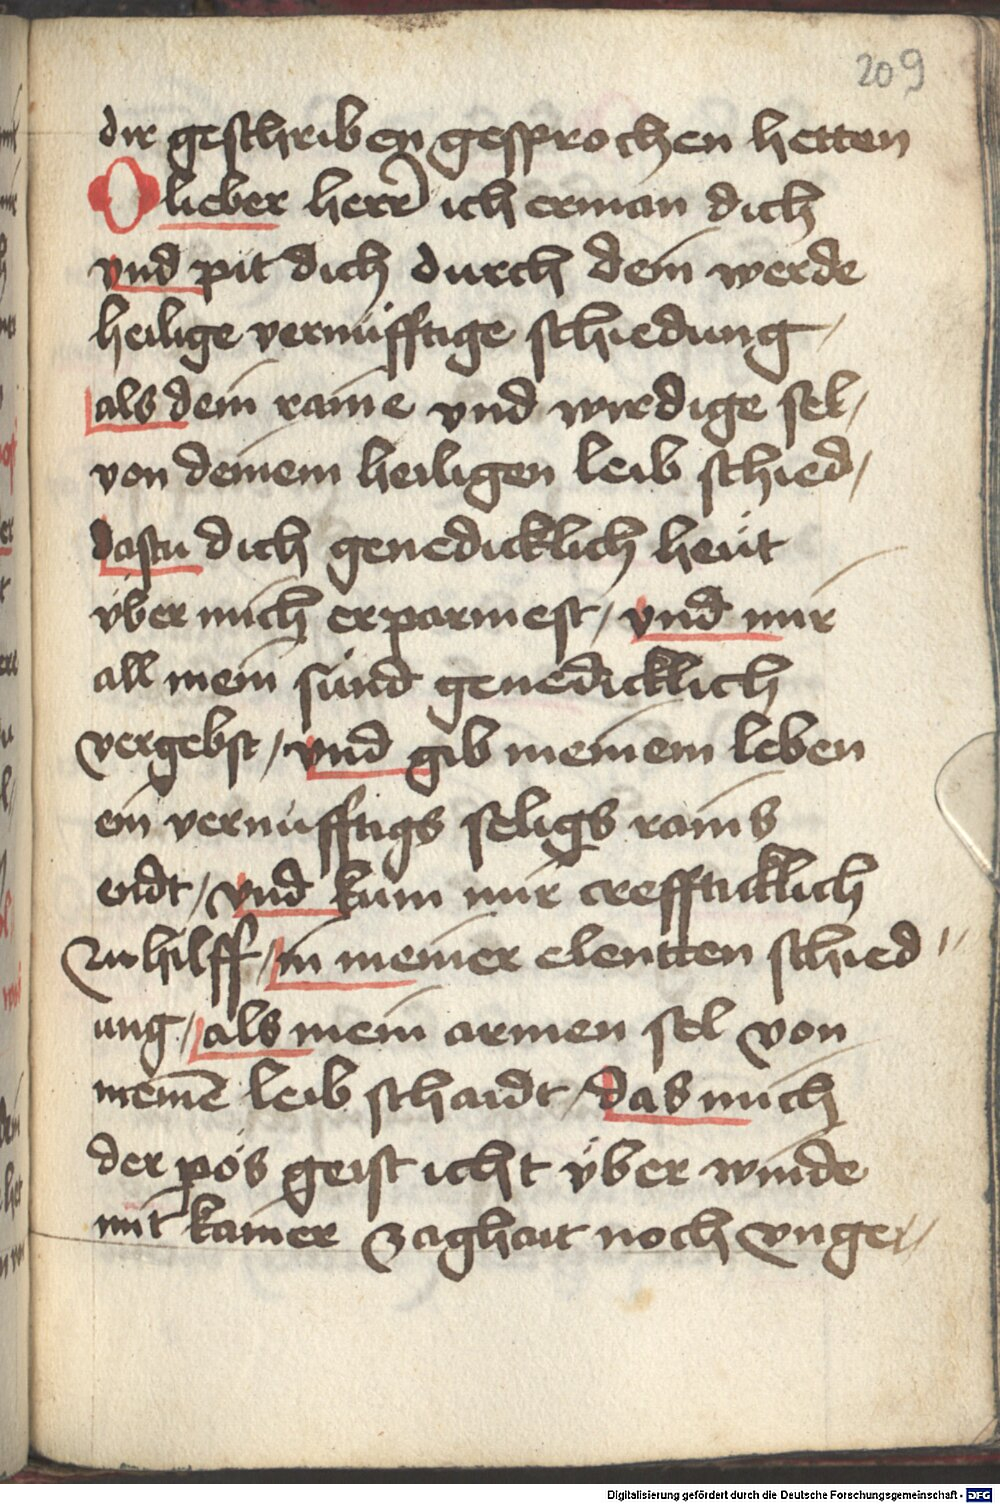 209
dir geschriben gesprochen hetten
O lieber herr ich erman dich
vnd pit dich durch dein werde
heilige vernüfftige schiedung /
als dein raine vnd wirdige sel /
von deinem heiligen leib schied /
dastu dich genedicklich heüt
über mich erparmest / vnd mir
all mein sünd genedicklich
vergebst / vnd gib meinem leben
ein vernüfftigs seligs rains
endt / vnd kum mir creffticklich
zu hilff / in meiner elentten schied //
ung / als mein armen sel von
meinē leib schaidt / das mich
der pös geist icht über winde
mit kainer zaghait noch vnge //
Digitalisierung gefördert durch die Deutsche Forschungsgemeinschaft - DFG